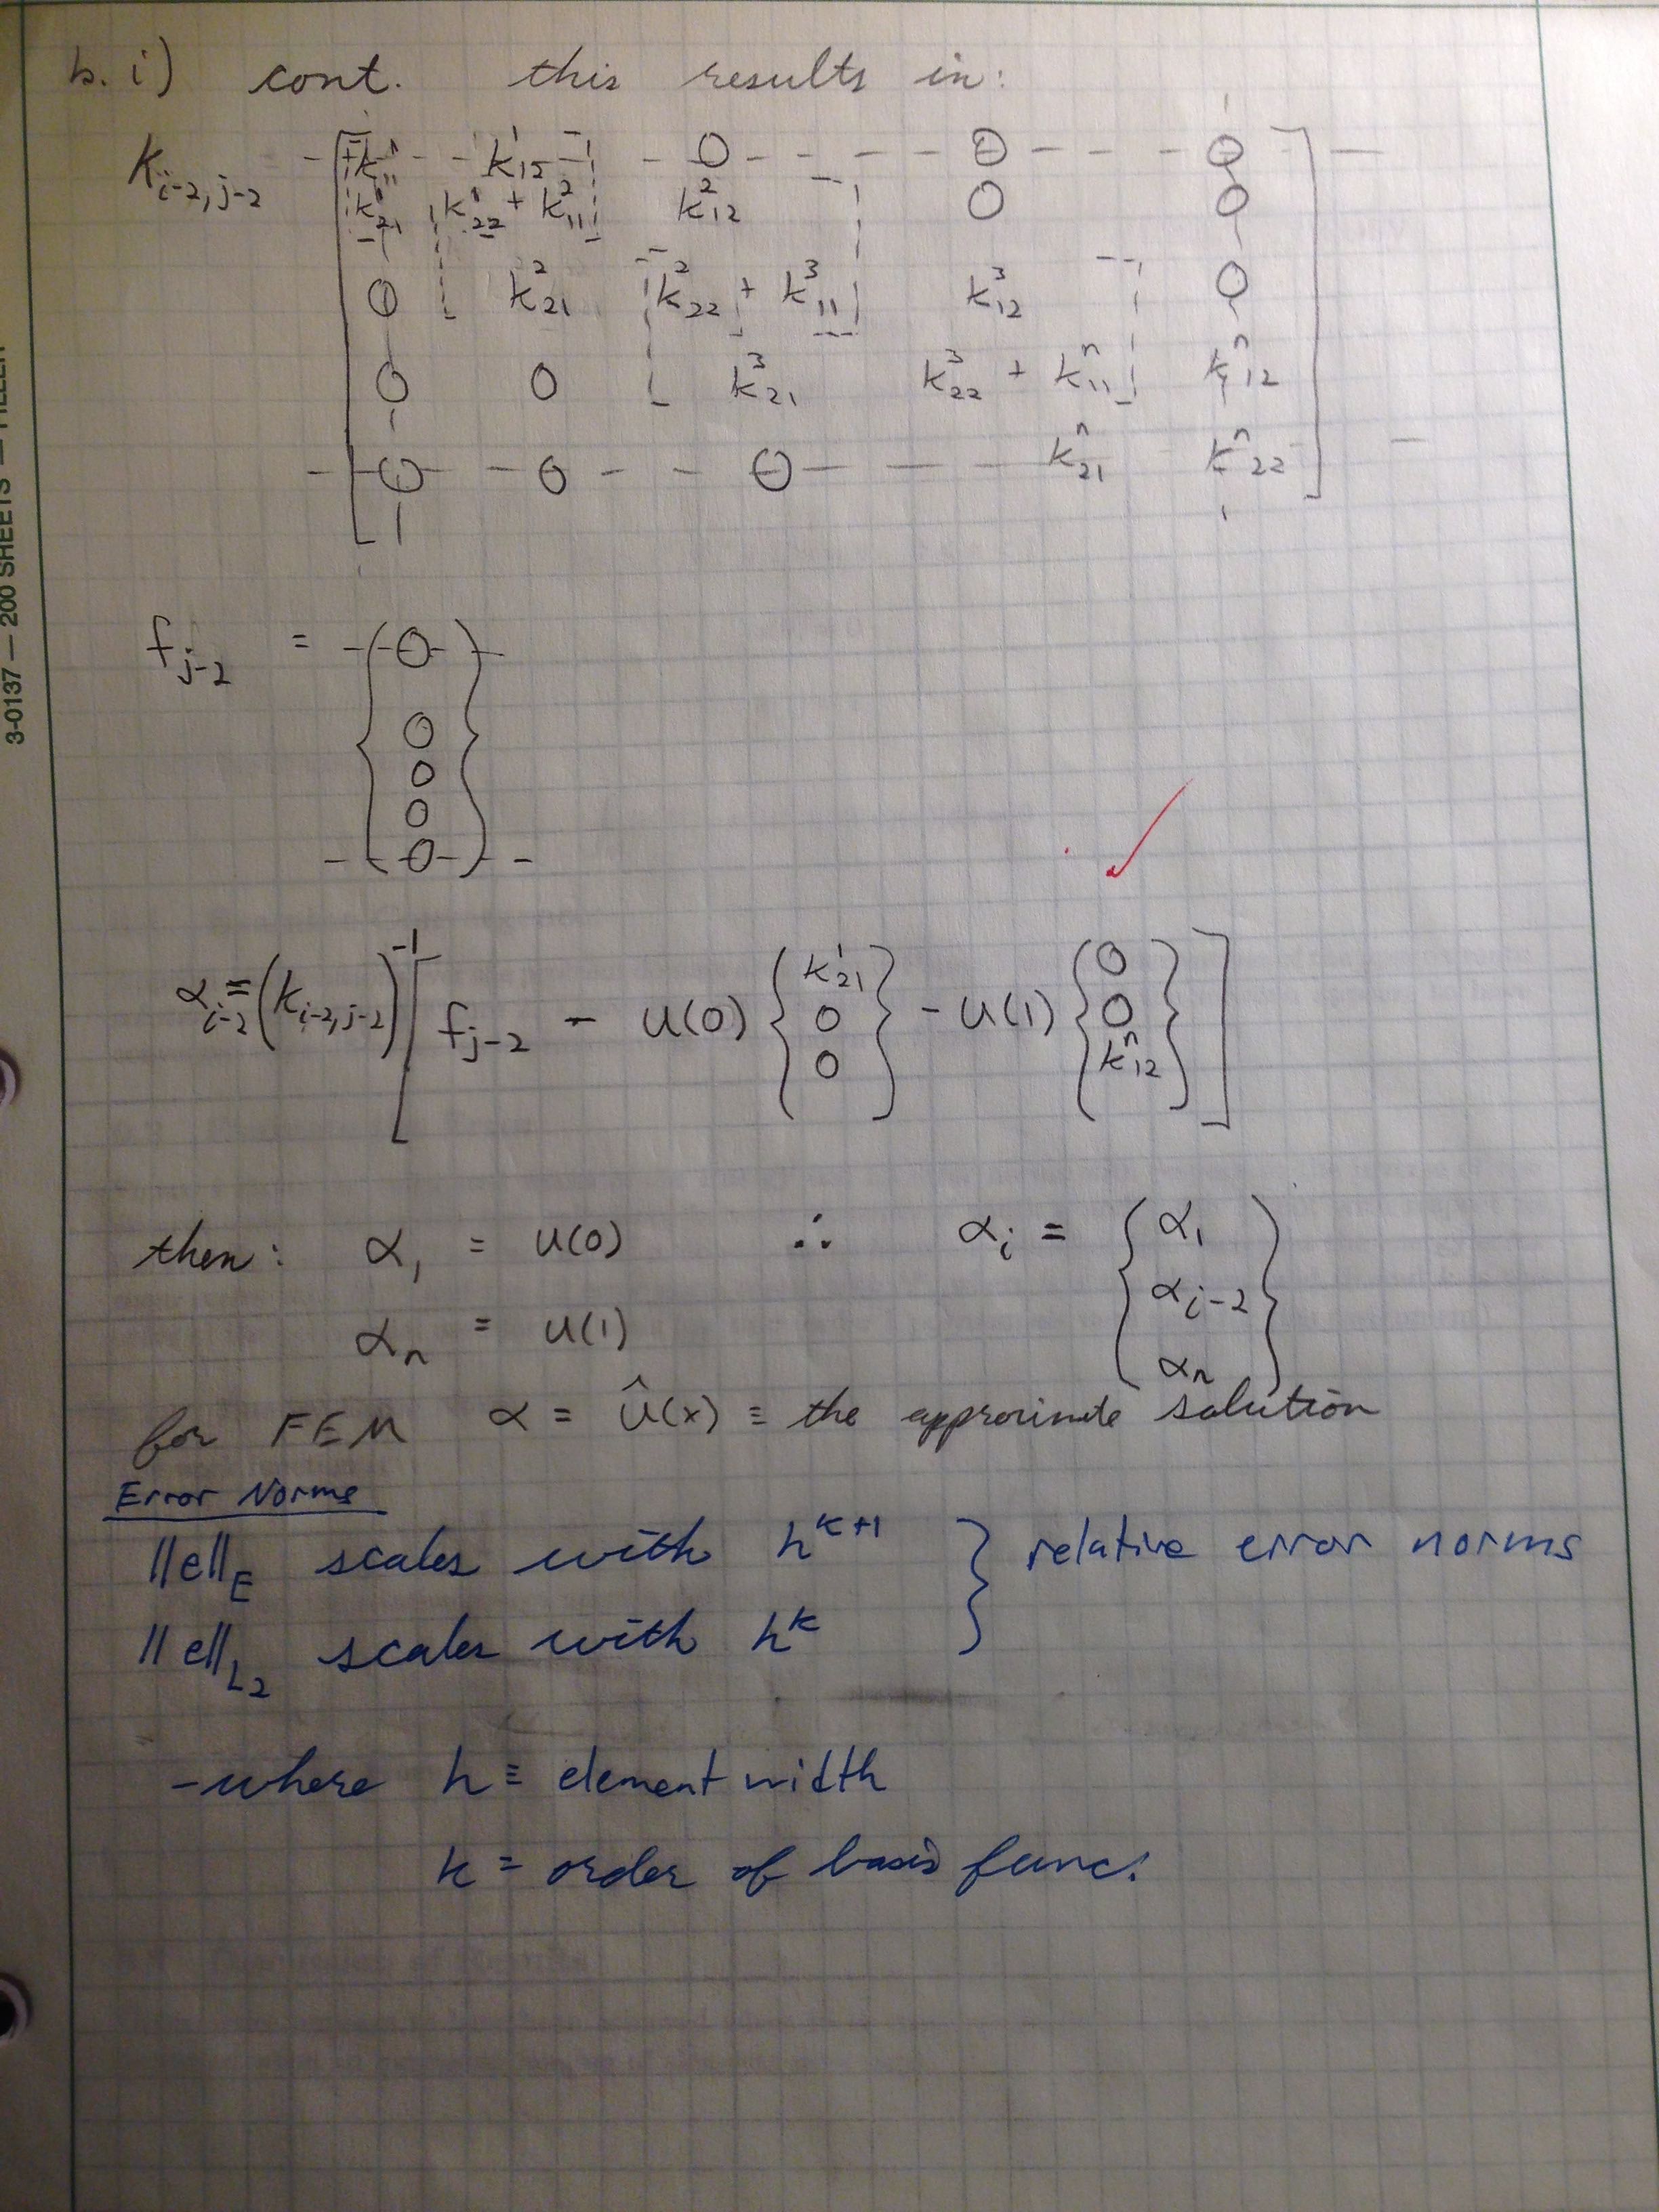 b. i) cont. this results in:
K_{i-2,j-2} [ k^1_{11} k^1_{12} 0 0 0
k^1_{21} k^1_{22} + k^2_{11} k^2_{12} 0 0
0 k^2_{21} k^2_{22} + k^3_{11} k^3_{12} 0
0 0 k^3_{21} k^3_{22} + k^n_{11} k^n_{12}
0 0 0 k^n_{21} k^n_{22} ]
3-0137 — 200 SHEETS —
f_{j-2} = { 0
0
0
0
0 }
α_{i-2} = (K_{i-2,j-2})^{-1} [ f_{j-2} - u(0) { k^1_{21} 0 0 } - u(1) { 0 0 k^n_{12} } ]
then: α_1 = u(0) ∴ α_i = { α_1 α_{i-2} α_n }
α_n = u(1)
for FEM α = û(x) ≡ the approximate solution
Error Norms
||e||_E scales with h^{k+1} } relative error norms
||e||_{L2} scales with h^k
-where h ≡ element width
k = order of basis func.